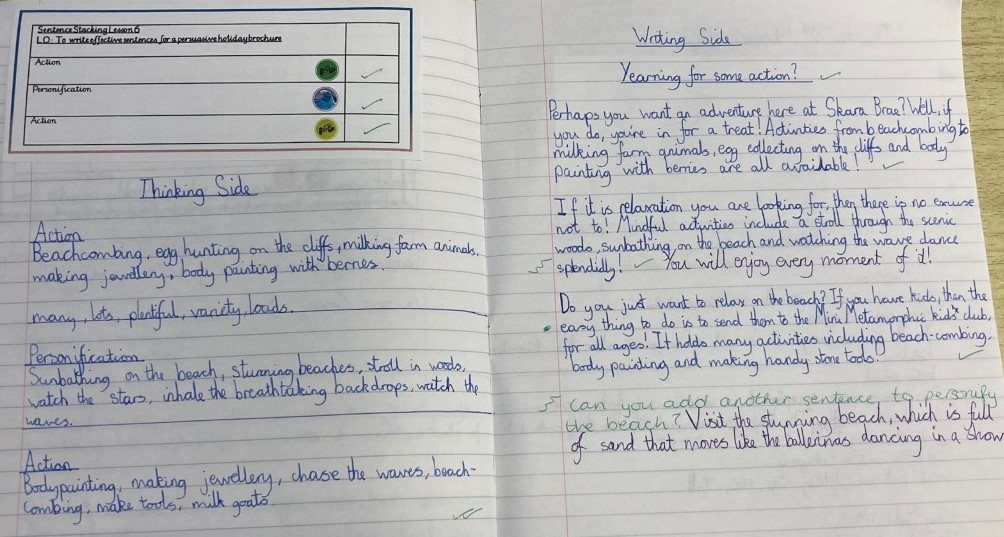 Sentence Stacking Lesson 6
LO: To write effective sentences for a persuasive holiday brochure
Action
Personification
Action
Thinking Side
Action
Beachcombing, egg hunting on the cliffs, milking farm animals,
making jewellery, body painting with berries.
many, lots, plentiful, variety, loads.
Personification
Sunbathing on the beach, stunning beaches, stroll in woods,
watch the stars, inhale the breathtaking backdrops, watch the
waves.
Action
Bodypainting, making jewellery, chase the waves, beach-
combing, make tools, milk goats
Writing Side
Yearning for some action?
Perhaps you want an adventure here at Skara Brae? Well, if
you do, you're in for a treat! Activities from beachcombing to
milking farm animals, egg collecting on the cliffs and body
painting with berries are all available!
If it is relaxation you are looking for, then there is no excuse
not to! Mindful activities include a stroll through the scenic
woods, sunbathing on the beach and watching the wave dance
splendidly! You will enjoy every moment of it!
Do you just want to relax on the beach? If you have kids, then the
easy thing to do is to send them to the Mini Metamorphic kids' club,
for all ages! It holds many activities including beach-combing,
body painting and making handy stone tools!
Can you add another sentence to personify
the beach? Visit the stunning beach, which is full
of sand that moves like the ballerinas dancing in a show